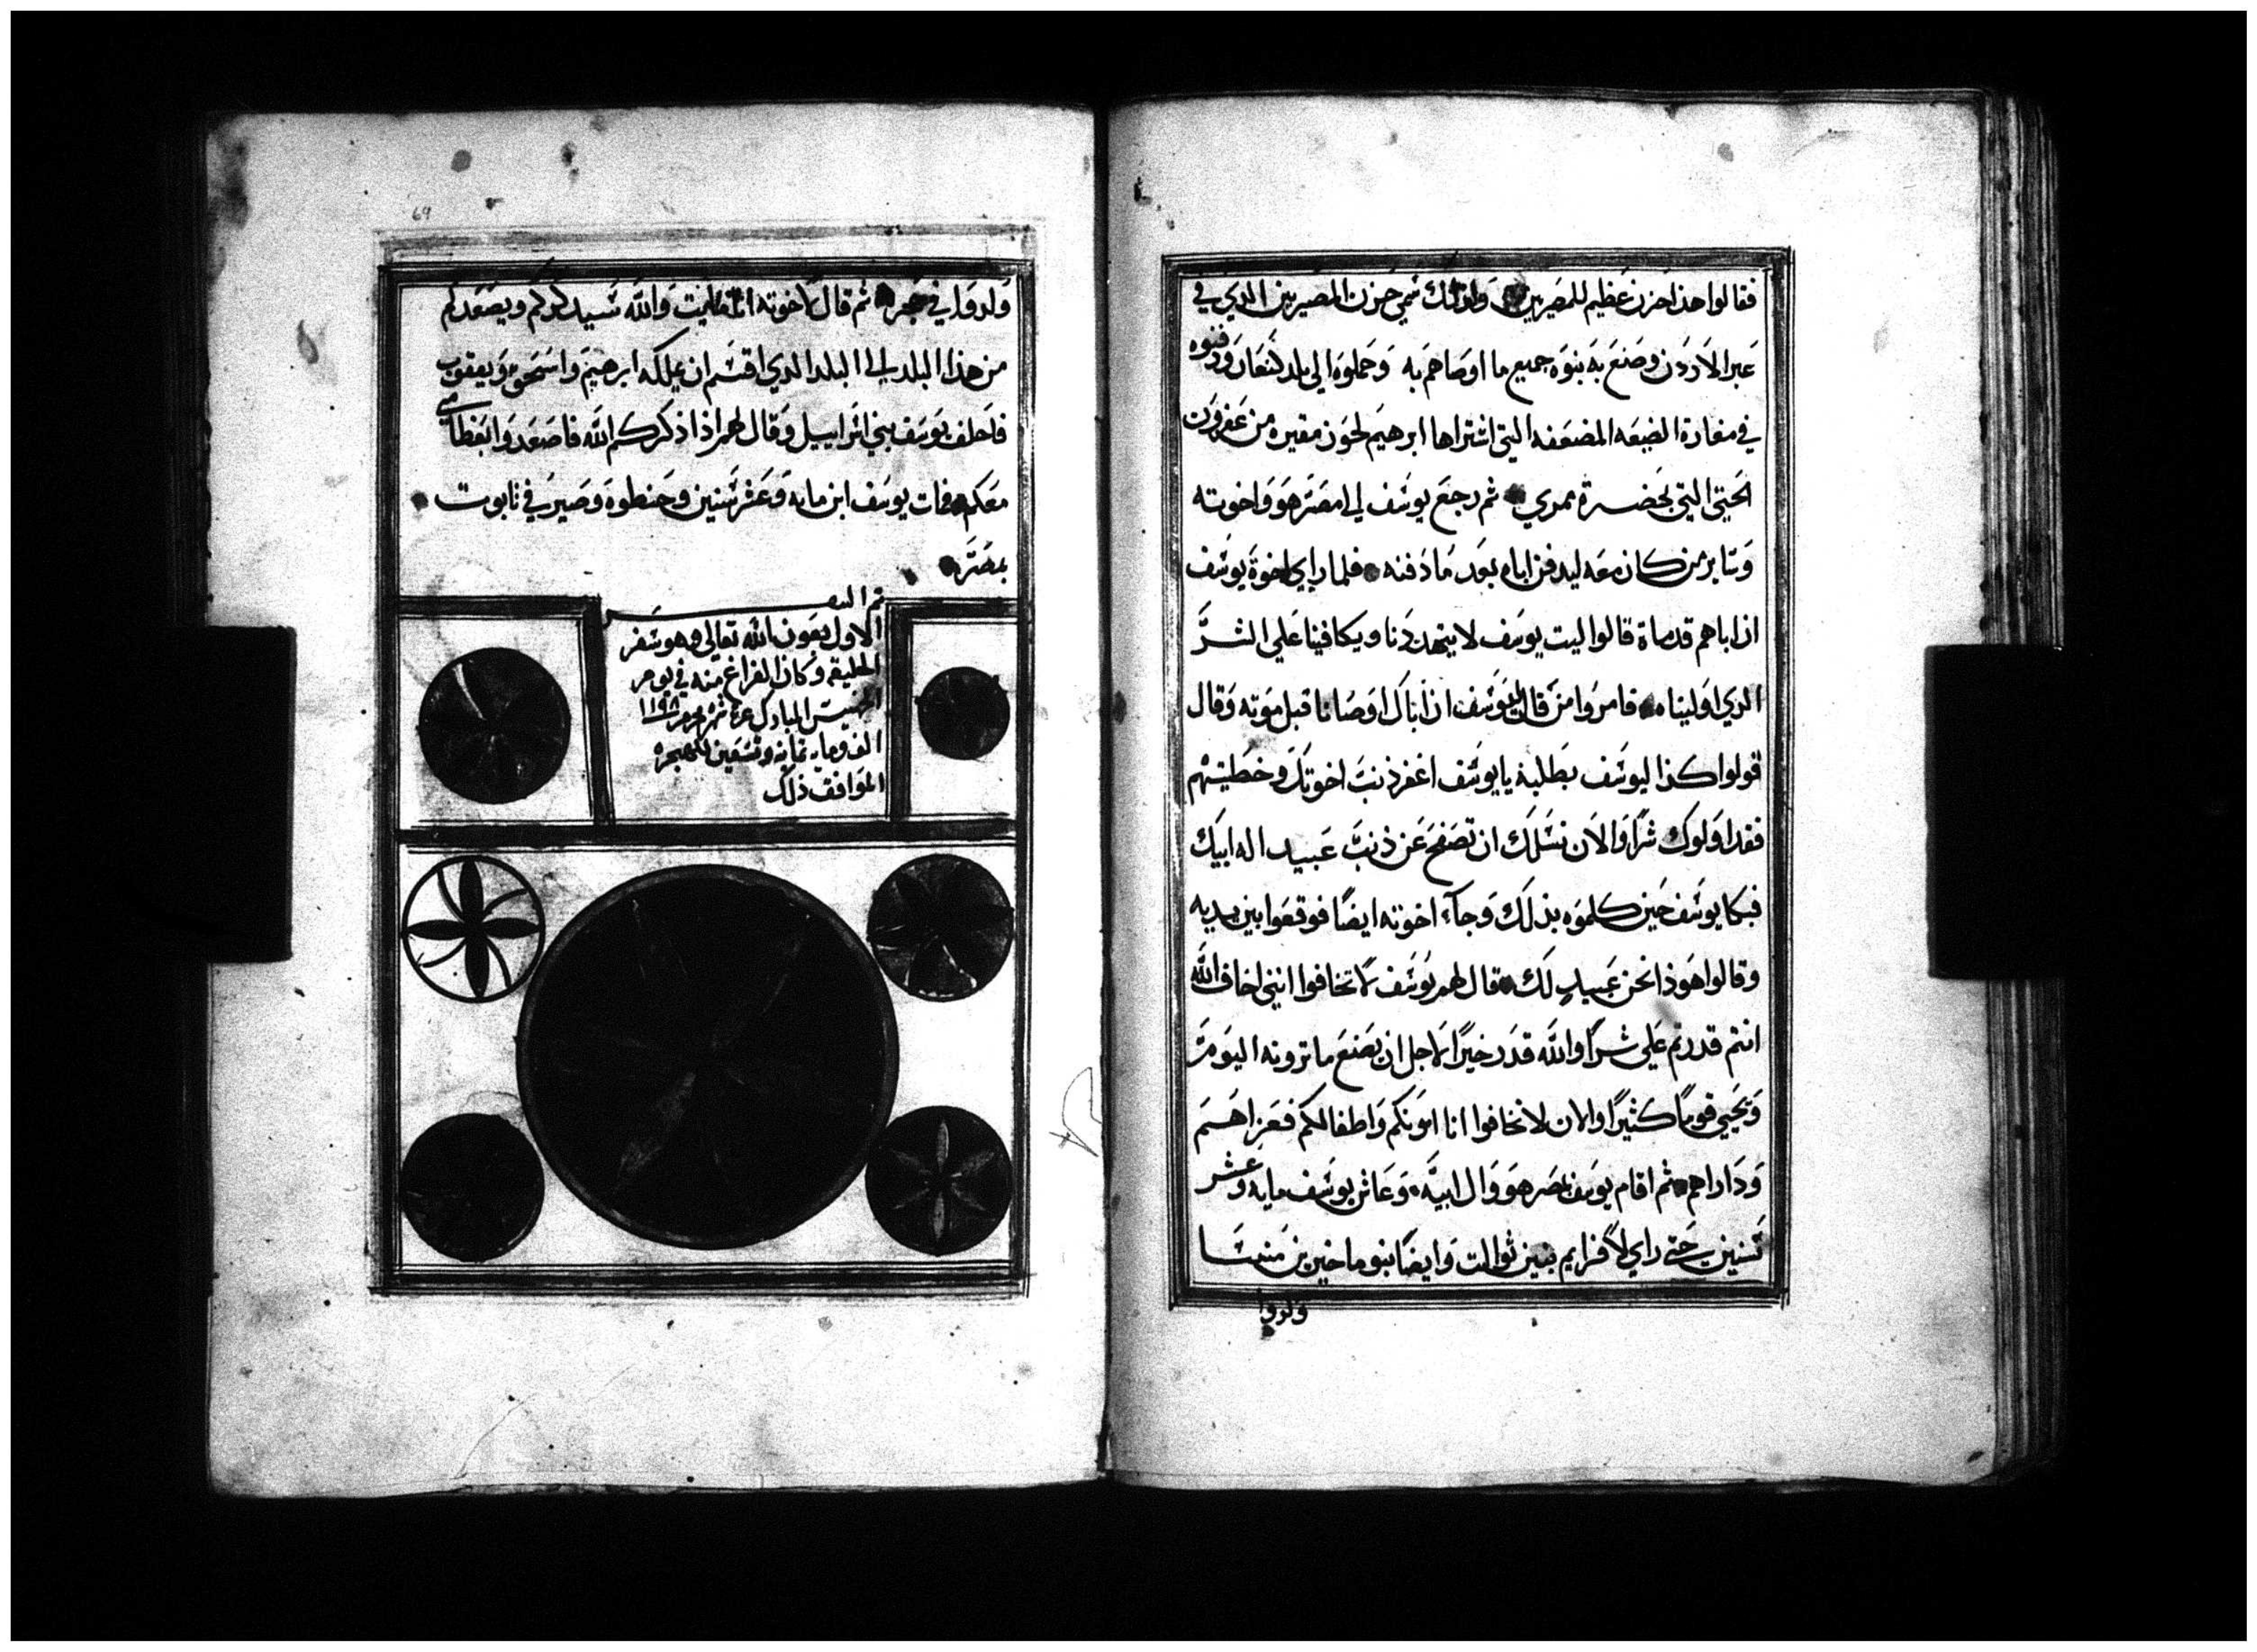 فقالوا هذا حزن عظيم للمصريين ولذلك سمي حزن المصريين الذي في
عبر الاردن وصنع به بنوه جميع ما اوصاهم به وحملوه الي بلد كنعان ودفنوه
في مغارة الضيعه المضعفه التي اشتراها ابرهيم لحوز مقبره من عفرون
الحيتي التي بحضرة ممري ثم رجع يوسف الي مصر هو واخوته
وسابر من كان معه ليدفن اباه بعد ما دفنه فلما راي اخوة يوسف
ان اباهم قد ماة قالوا ليت يوسف لا يتهددنا ويكافينا علي الشر
الدي اوليناه فامروا من قال ليوسف ان اباك اوصانا قبل موته وقال
قولوا كذا ليوسف بطلبة يا يوسف اغفر ذنب اخوتك وخطيتهم
فقد اولوك شرا والان نسلك ان تصفح عن ذنب عبيد اله ابيك
فبكا يوسف حين كلموه بذلك وجاء اخوته ايضا فوقعوا بين يديه
وقالوا هوذا نحن عبيد لك قال لهم يوسف لا تخافوا انني اخاف الله
انتم قدرتم علي شرا والله قدر خيرا لاجل ان يصنع ما ترونه اليوم
ويحيي قوما كثيرا والان لا تخافوا انا امونكم واطفالكم فعزاهم
وداراهم ثم اقام يوسف بمصر هو وال ابيه وعاش يوسف مايه وعشر
سنين حتي راي لافرايم بنين ثوالت وايضا بنو ماخير بن منسا
ولدوا
69
ولدوا في حجره ثم قال لاخوته والله سيذكركم ويصعدكم
من هذا البلد الي البلد الدي اقسم ان يملكه ابرهيم واسحق ويعقوب
فاحلف يوسف بني اسراييل وقال لهم اذا ذكركم الله فاصعدوا بعظامي
معكم فمات يوسف ابن مايه وعشر سنين وحنطوه وصير في تابوت
بمصر
تم السفر
الاول بعون الله تعالي وهو سفر
الخليقه وكان الفراغ منه في يوم
الخميس المبارك شهر محرم ١١٩٨
الف ومايه ثمانيه وتسعين للهجره
الموافق ذلك